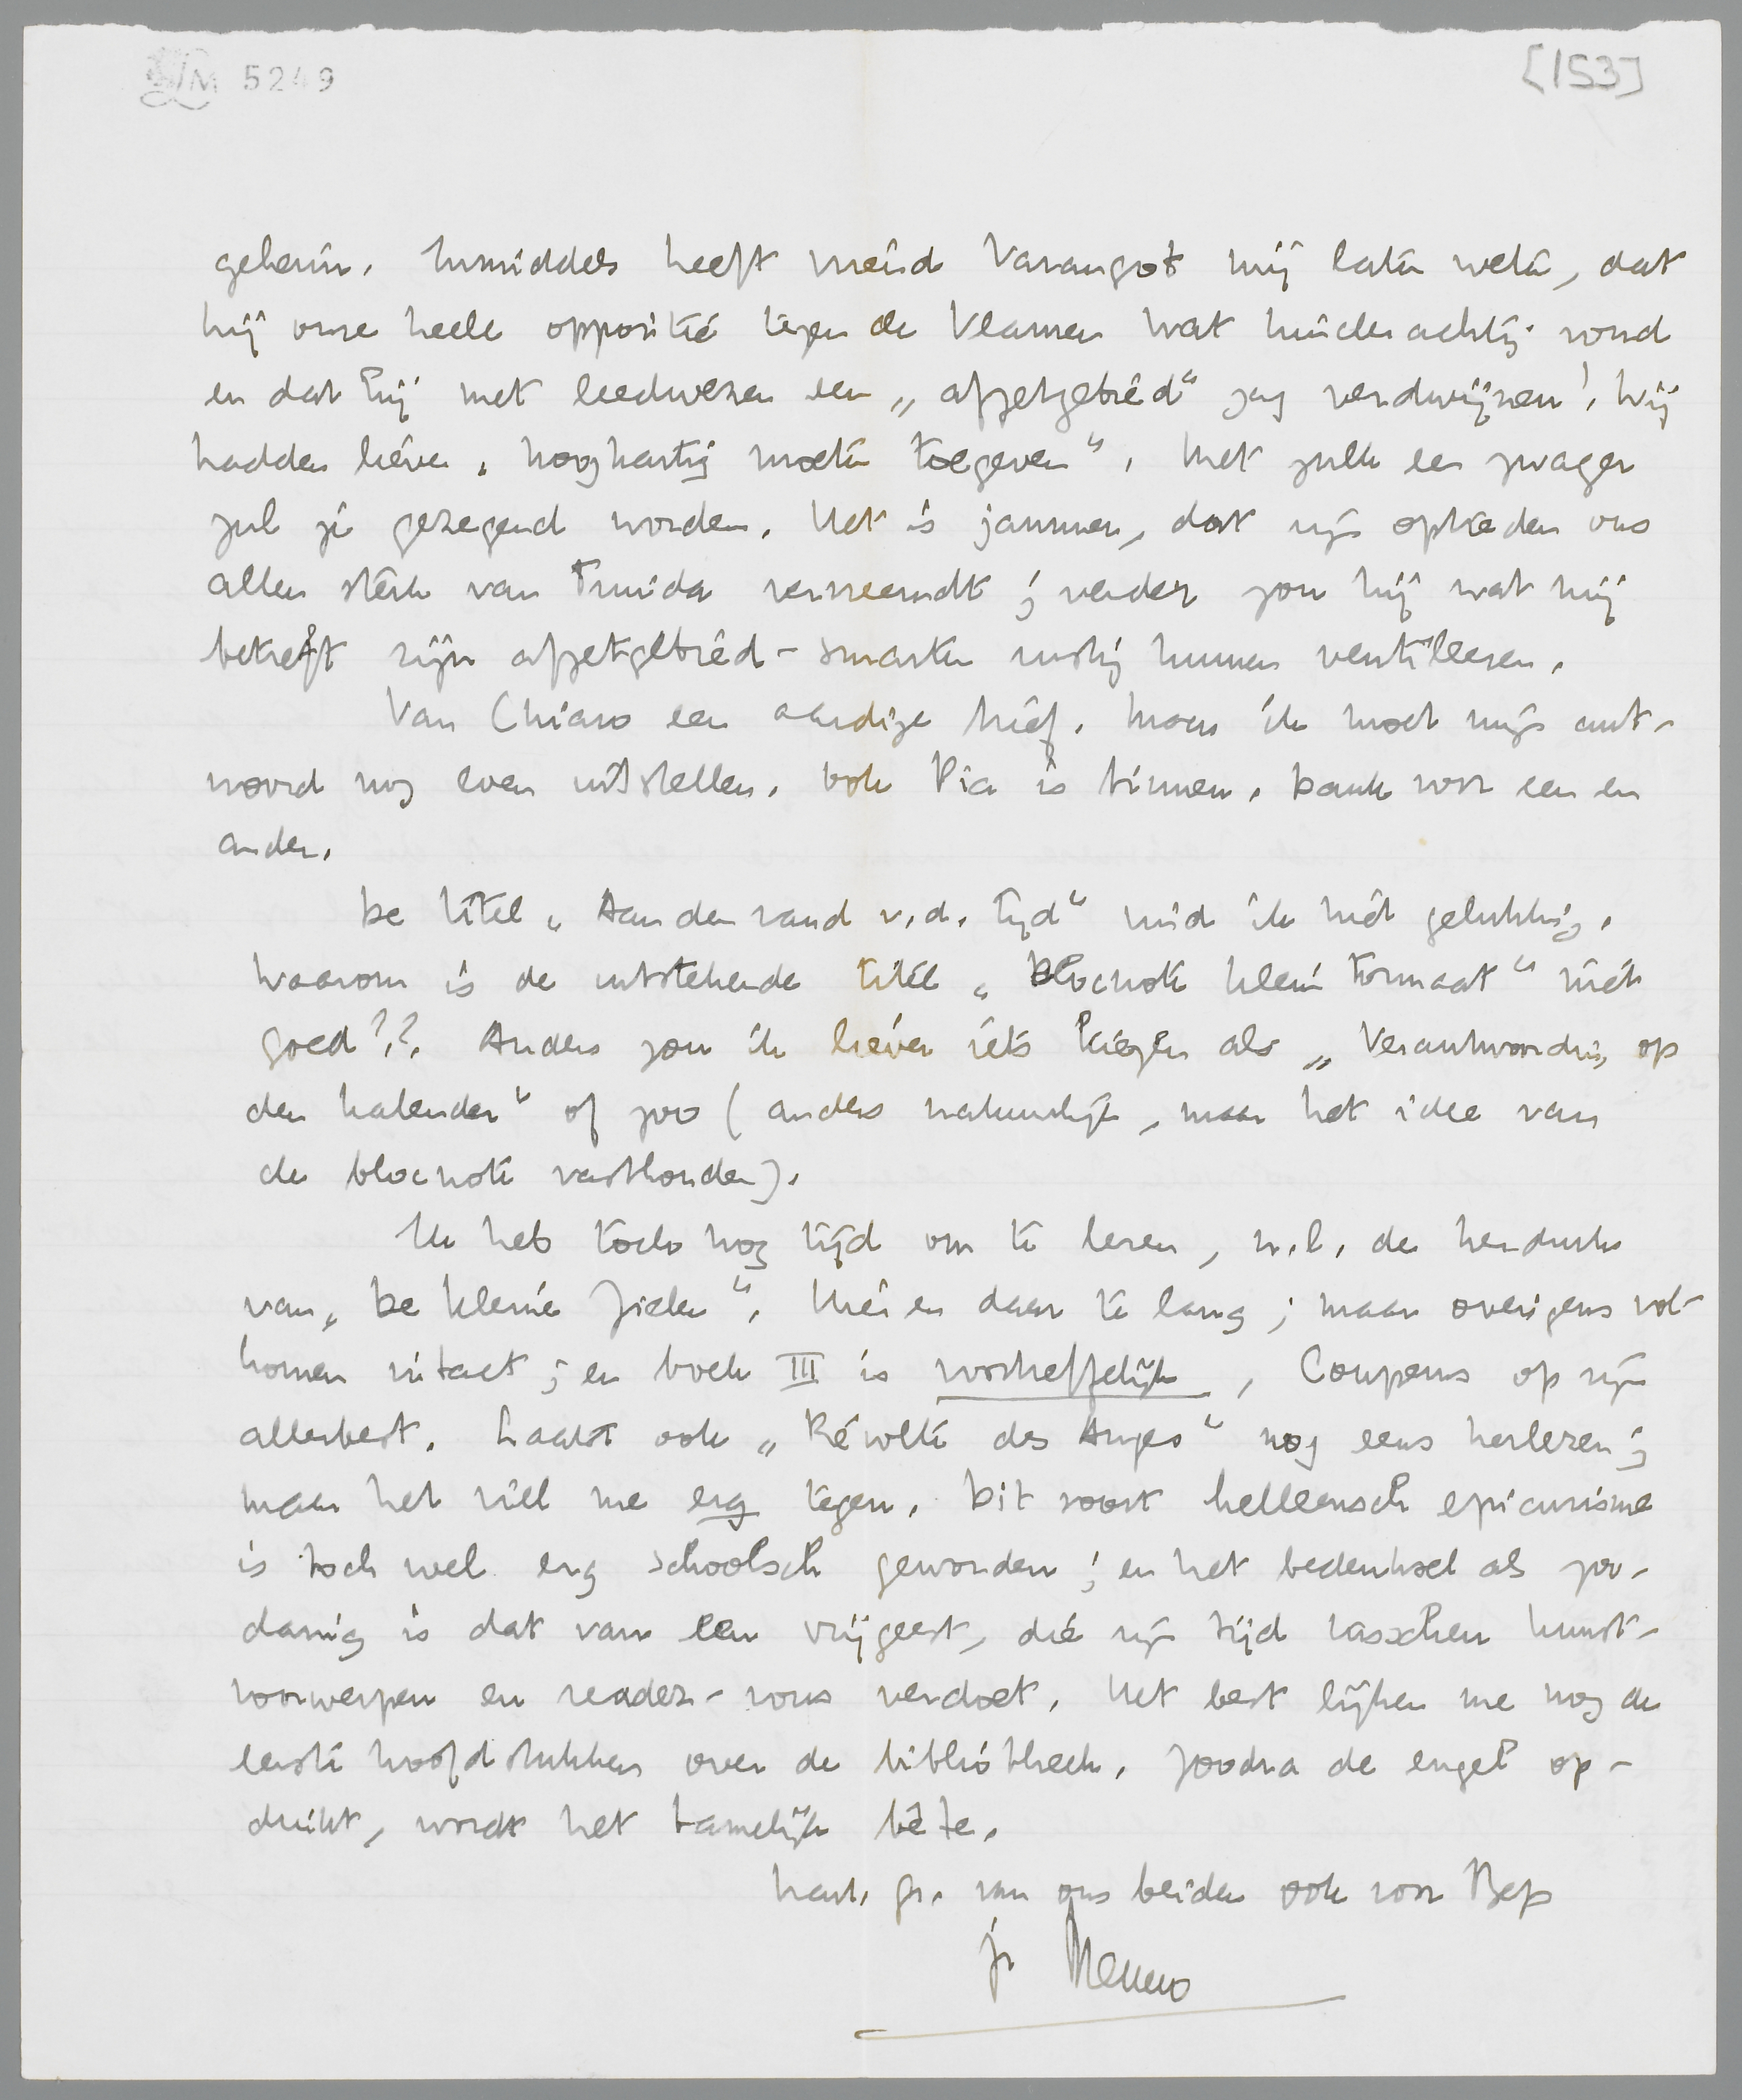 LM 5249
[153]
geheim. Inmiddels heeft vriend Varangot mij laten weten, dat
hij onze heele oppositie tegen de Vlamen wat kinderachtig vond
en dat hij met leedwezen een „afzetgebied" zag verdwijnen! Wij
hadden liever „hooghartig moeten toegeven". Met zulk een zwager
zul je gezegend worden. Het is jammer, dat zijn optreden ons
allen sterk van Truida vervreemdt; verder zou hij wat mij
betreft zijn afzetgebied-smarten rustig kunnen ventileeren.
Van Chiaro een aardige brief. Maar ik moet mijn ant-
woord nog even uitstellen. Ook Pia is binnen. Dank voor een en
ander.
De titel „Aan den rand v.d. tijd" vind ik niet gelukkig.
Waarom is de uitstekende titel „Blocnote klein formaat" niet
goed?? Anders zou ik liever iets kiezen als „Verantwoording op
den kalender" of zoo (anders natuurlijk, maar het idee van
de blocnote vasthouden).
Ik heb toch nog tijd om te lezen, n.l. de herdruk
van „De kleine Zielen". Hier en daar te lang; maar overigens vol-
komen intact; en boek III is voortreffelijk, Couperus op zijn
allerbest. Laatst ook „Révolte des Anges" nog eens herlezen;
maar het viel me erg tegen. Dit soort helleensch epicurisme
is toch wel erg schoolsch geworden; en het bedenksel als zoo-
danig is dat van een vrijgeest, die zijn tijd tusschen kunst-
voorwerpen en rendez-vous verdoet. Het best lijken me nog de
eerste hoofdstukken over de bibliotheek. Zoodra de engel op-
duikt, wordt het tamelijk bête.
hart. gr. van ons beiden ook voor Bep
je Menno